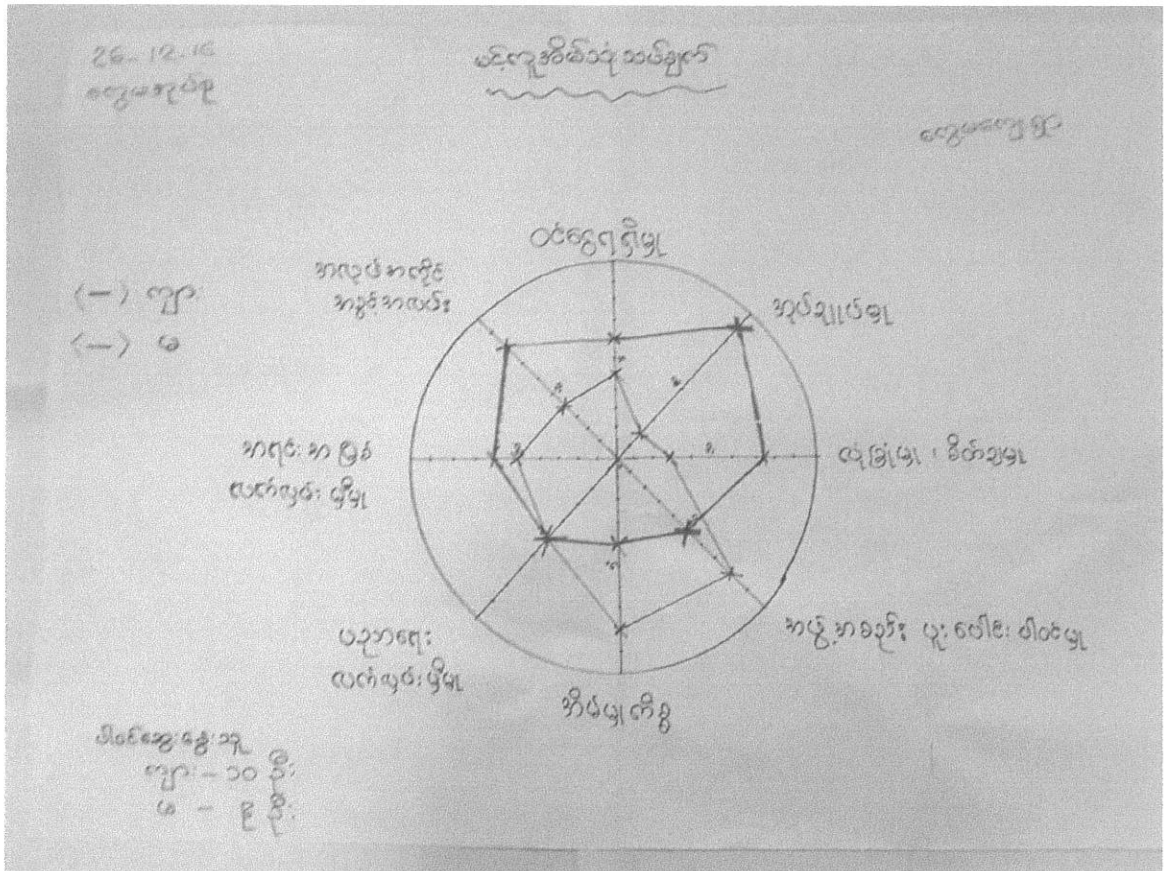 26-12-16
ပင့်ကူအိမ်သုံးသပ်ချက်
ဝင်ငွေရရှိမှု
အလုပ်အကိုင်
အခွင့်အလမ်း
အုပ်ချုပ်မှု
(—) ကျား
(—) မ
အရင်းအမြစ်
လက်လှမ်းမှီမှု
လုံခြုံမှု ၊ စိတ်ချမှု
ပညာရေး
လက်လှမ်းမှီမှု
အဖွဲ့အစည်း ပူးပေါင်းပါဝင်မှု
အိမ်မှုကိစ္စ
ပါဝင်ဆွေးနွေးသူ
ကျား - ၁၀ ဦး
မ - ၃ ဦး